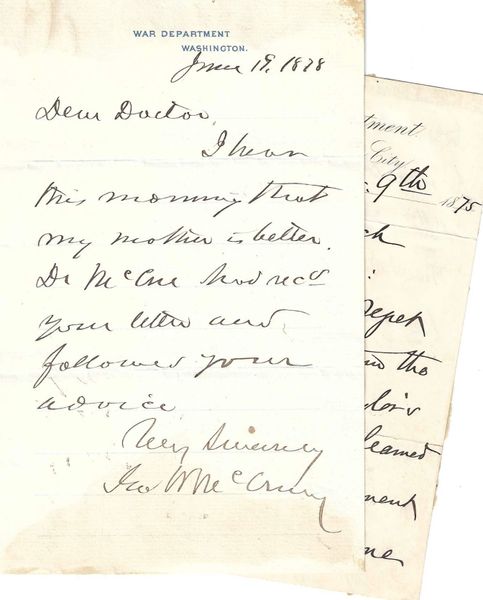 WAR DEPARTMENT
WASHINGTON.
June 19. 1878
Dear Doctor,
I hear
this morning that
my mother is better.
Dr McCue had recd
your letter and
followed your
advice
Very Sincerely
Geo W McCrary
tment.
City
9th 1875
ch
regret
the
lor's
learned
ment
me